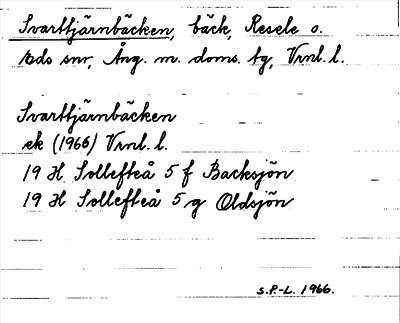 Svarttjärnbäcken, bäck, Resele o.
Eds snr, Ång. m. doms. tg, Vrnl. l.
Svarttjärnbäcken
ek (1966) Vrnl. l.
19 H Sollefteå 5 f Backsjön
19 H Sollefteå 5 g Oldsjön
S.P.-L. 1966.